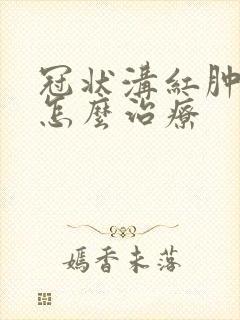 冠状溝紅肿
怎麼治療
嫣香未落